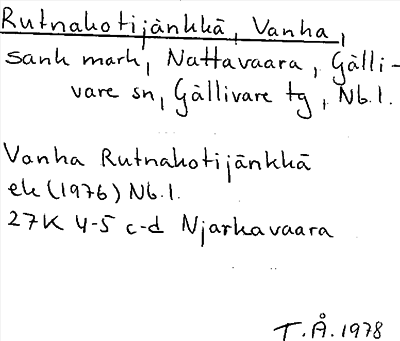 Rutnakotijänkkä, Vanha,
sank mark, Nattavaara, Gälli-
vare sn, Gällivare tg, Nb.l.
Vanha Rutnakotijänkkä
ek (1976) Nb.l.
27K 4-5 c-d Njarkavaara
T.Å. 1978